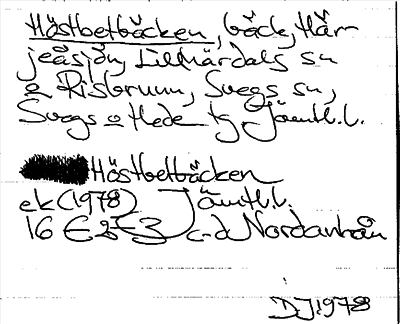 Höstbetbäcken, bäck, Här-
jeåsjön, Lillhärdals sn
o Risbrunn, Svegs sn,
Svegs o Hede tg Jämtl.l.
Höstbetbäcken
ek (1978) Jämtl.l.
16 E 2-3 c-d Nordanhån
DJ 1978